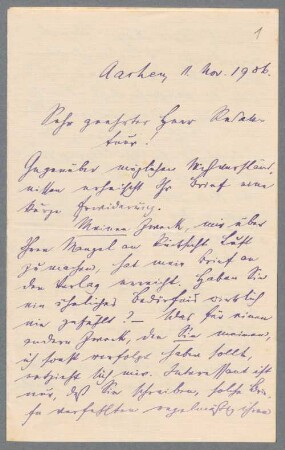 1
Aachen, 11. Nov. 1906.
Sehr geehrter Herr Redak-
teur!
Gegenüber möglichen Mißverständ-
nissen erheischt Ihr Brief eine
kurze Erwiderung.
Meinen Zweck, mir über
Ihren Mangel an Rücksicht Luft
zu machen, hat mein Brief an
den Verlag erreicht. Haben Sie
ein ähnliches Bedürfnis wirklich
nie gefühlt? Was für einen
andern Zweck, den Sie meinen,
ich sonst verfolgt haben sollte,
entzieht sich mir. Interessant ist
nur, daß Sie schreiben, solche Brie-
fe verfehlten regelmäßig ihren